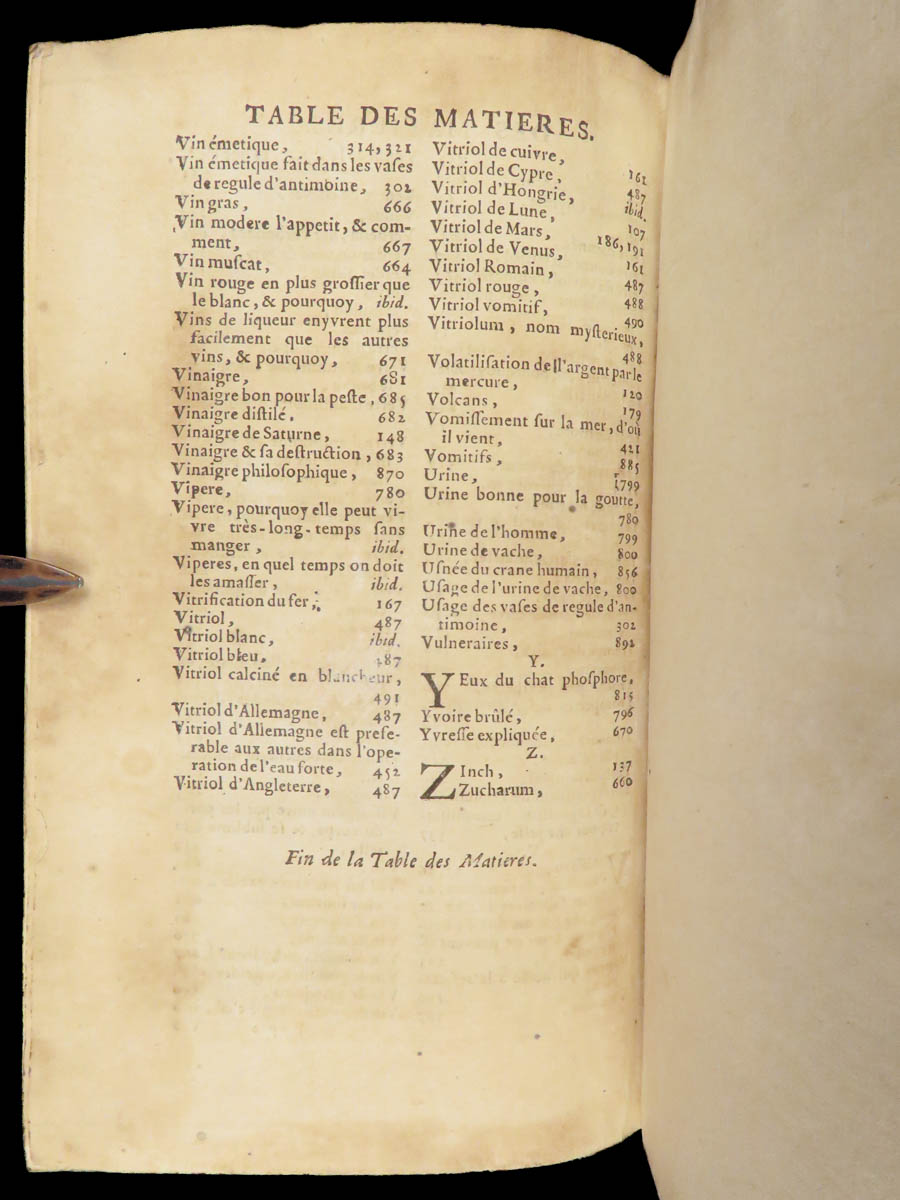 TABLE DES MATIERES.
Vin émetique, 314, 321
Vin émetique fait dans les vaſes
de regule d'antimoine, 302
Vin gras, 666
Vin modere l'appetit, & com-
ment, 667
Vin muſcat, 664
Vin rouge en plus groſſier que
le blanc, & pourquoy, ibid.
Vins de liqueur enyvrent plus
facilement que les autres
vins, & pourquoy, 671
Vinaigre, 681
Vinaigre bon pour la peſte, 685
Vinaigre diſtilé, 682
Vinaigre de Saturne, 148
Vinaigre & ſa deſtruction, 683
Vinaigre philoſophique, 870
Vipere, 780
Vipere, pourquoy elle peut vi-
vre très-long-temps ſans
manger, ibid.
Viperes, en quel temps on doit
les amaſſer, ibid.
Vitrification du fer, 167
Vitriol, 487
Vitriol blanc, ibid.
Vitriol bleu, 487
Vitriol calciné en blancheur,
491
Vitriol d'Allemagne, 487
Vitriol d'Allemagne eſt prefe-
rable aux autres dans l'ope-
ration de l'eau forte, 452
Vitriol d'Angleterre, 487
Vitriol de cuivre, 161
Vitriol de Cypre, 487
Vitriol d'Hongrie, ibid.
Vitriol de Lune, 107
Vitriol de Mars, 186, 191
Vitriol de Venus, 161
Vitriol Romain, 487
Vitriol rouge, 488
Vitriol vomitif, 490
Vitriolum, nom myſterieux,
488
Volatiliſation de l'argent par le
mercure, 120
Volcans, 179
Vomiſſement ſur la mer, d'où
il vient, 421
Vomitifs, 885
Urine, 799
Urine bonne pour la goutte,
780
Urine de l'homme, 799
Urine de vache, 800
Uſnée du crane humain, 856
Uſage de l'urine de vache, 800
Uſage des vaſes de regule d'an-
timoine, 302
Vulneraires, 892
Y.
YEux du chat phoſphore,
815
Yvoire brûlé, 796
Yvreſſe expliquée, 670
Z.
ZInch, 137
Zucharum, 660
Fin de la Table des Matieres.